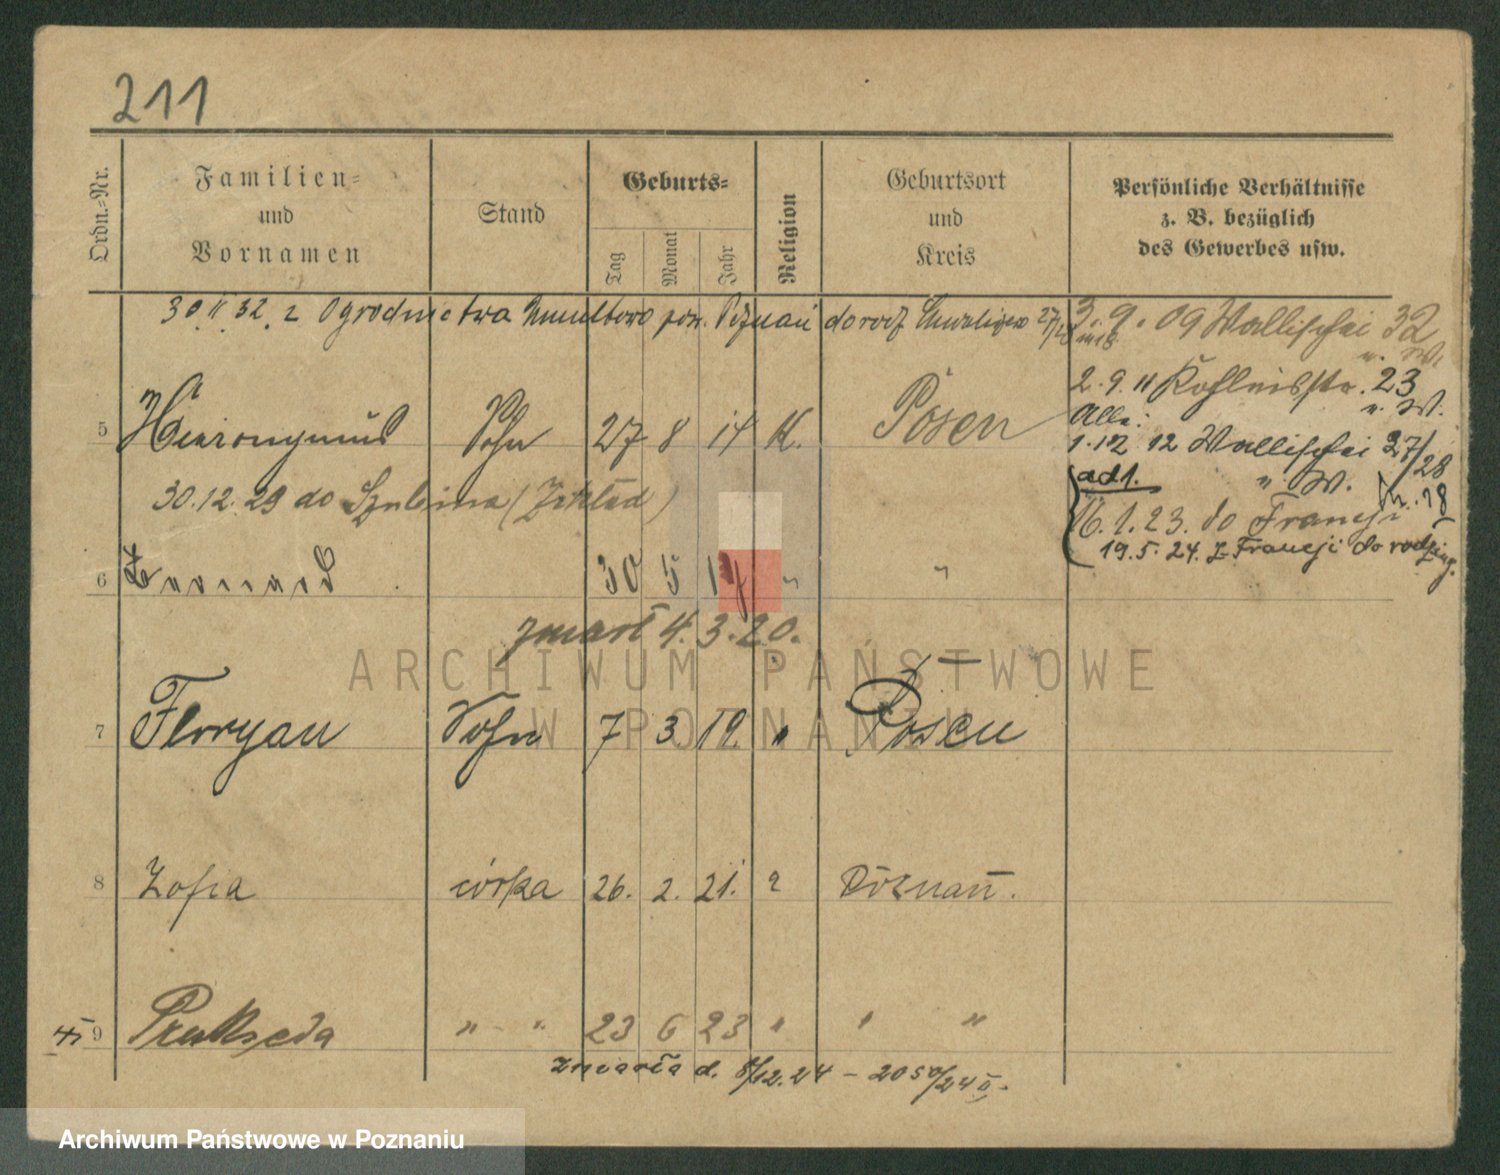 211
Ordn.-Nr.
Familien-
und
Vornamen
Stand
Geburts-
Tag
Monat
Jahr
Religion
Geburtsort
und
Kreis
Persönliche Verhältnisse
z. B. bezüglich
des Gewerbes usw.
30 II 32. z Ogrodnictwa Umultowo pow. Poznań do rodz
3.9.09 Wallischei 32
u. W.
2.9.11 23
u. W.
Alle:
5 Hieronymus Sohn 27 8 14 K. Posen
1.12 12 Wallischei 27/28
u. W.
30.12.29 do Szubina (Zakład)
ad 1. 18
16.1.23. do Francji
19.5.24. z Francji do rodziny.
6 Bernard 30 5 17 " "
zmarł 4.3.20.
7 Floryan Sohn 7 3 19. " Posen
8 Zofia córka 26. 2. 21. Poznań.
9 Prakseda " - " 23 6 23 " " "
Zmarła d. 8/12.24 – 2050/24 II.
ARCHIWUM PAŃSTWOWE
W POZNANIU
Archiwum Państwowe w Poznaniu